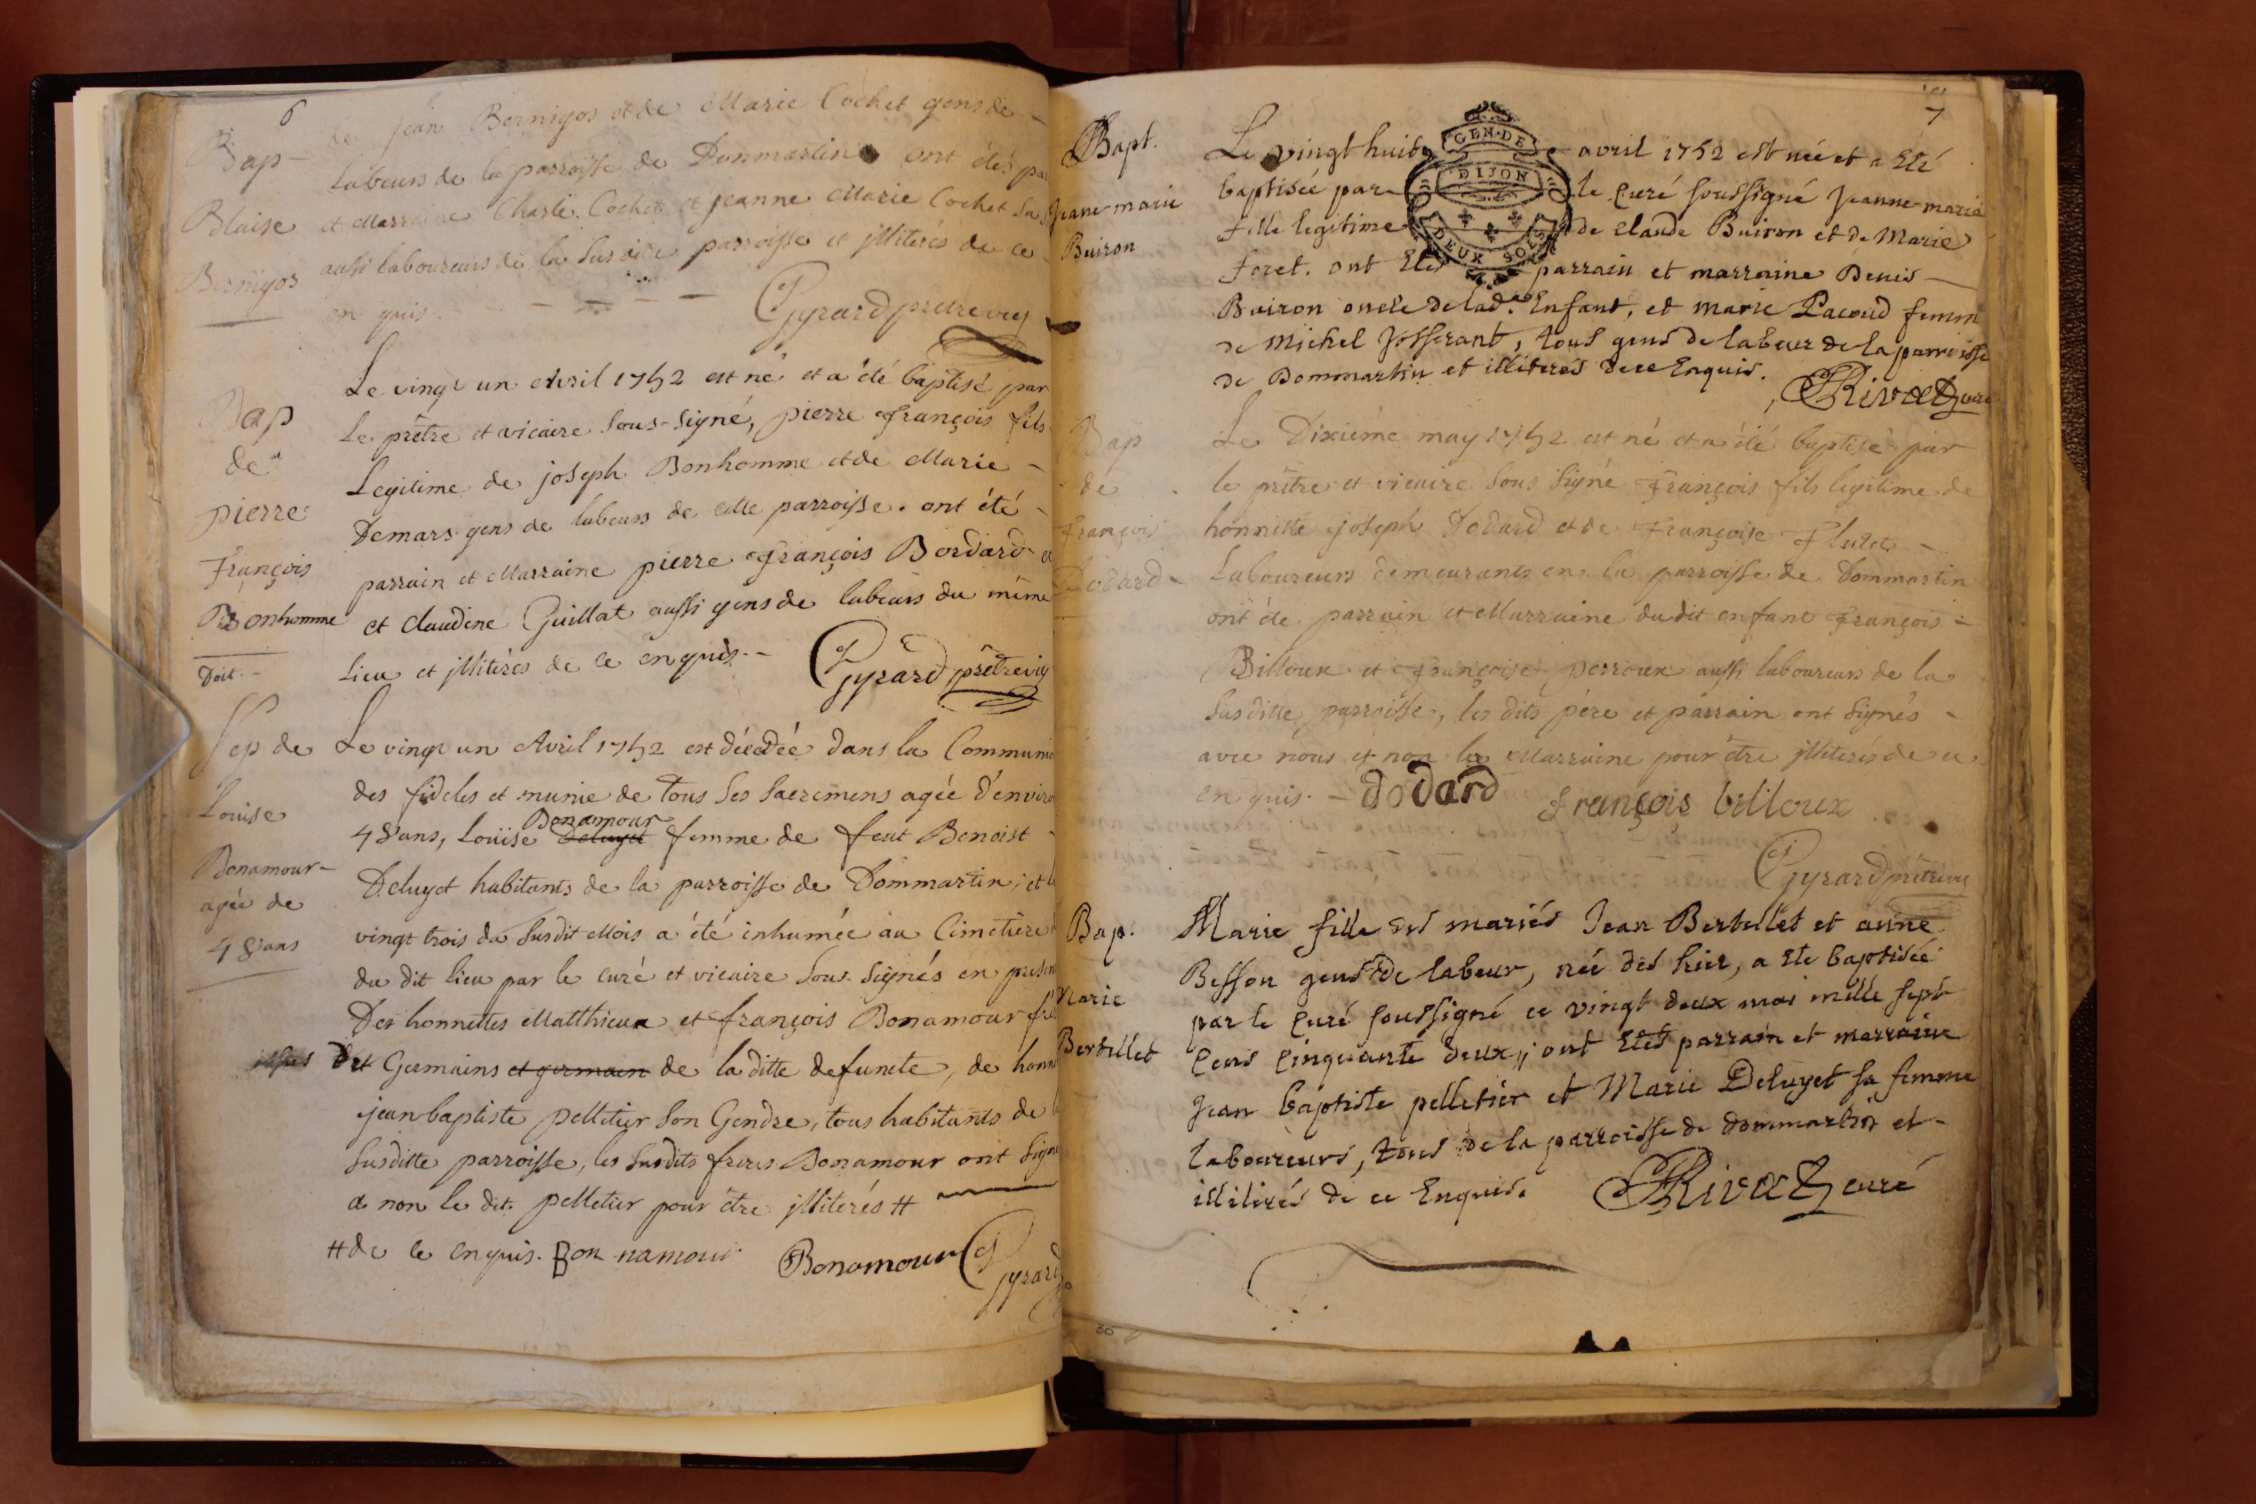 6
Bap
Blaise
Bernigos
de jean Bernigos et de Marie Cochet gens de
labeurs de la parroisse de Donmartin ont étés par
et Marraine Charle Cochet et jeanne Marie Cochet sa
aussi laboureurs de la susditte parroisse et illiterés de ce
en quis.
Gyrard pretre vic
Bap
de
pierre
François
Bonhomme
Doit.
Le vingt un Avril 1752 est né et a été baptisé par
Le prêtre et vicaire sous-signé, pierre François fils
Legitime de joseph Bonhomme et de Marie
Demars gens de labeurs de cette parroisse. ont été
parrain et Marraine pierre François Bordard et
et claudine Guillat aussi gens de labeurs du même
Lieu et illiterés de ce enquis.
Gyrard prêtre vic
Sep de
Louise
Bonamour
agée de
48 ans
Le vingt un Avril 1752 est décédée dans la Communi
des fideles et munie de tous ses sacremens agée d'enviro
Bonamour
48 ans, Louïse Deluyet femme de feut Benoist
Deluyet habitants de la parroisse de Dommartin, et
vingt trois du susdit Mois a été inhumée au Cimetiere
du dit lieu par le curé et vicaire sous-signés en presen
Des honnettes Matthieux et françois Bonamour
issus de Germains et germain de laditte defuncte, de honn
jean baptiste pelletier son Gendre, tous habitants de
susditte parroisse, les susdits freres Bonamour ont signé
a non le dit pelletier pour être illiterés #
# de ce enquis. Bon namour Bonamour Gyrard
7
Bapt.
Jeane marie
Buiron
GEN. DE
DIJON
DEUX SOLS
Le vingt huit avril 1752 est née et a été
baptisée par le curé soussigné Jeanne-marie
fille legitime de claude Buiron et de Marie
foret. ont étés parrain et marraine Denis
Buiron oncle de lad. Enfant, et marie Pacoud femm
de Michel Josserant, tous gens de labeur de la parroisse
de Dommartin et illiterés de ce Enquis.
Rivat curé
Bap
de
François
Dodard
Le Dixiéme may 1752 est né et a été baptisé par
le prêtre et vicaire sous signé François fils legitime de
honnitte joseph Dodard et de Françoise Flutet
Laboureurs demeurants en la parroisse de Dommartin
ont été parrain et Marraine dudit enfant François
Billoux et Françoise perroux aussi laboureurs de la
susditte parroisse, les dits pére et parrain ont signés
avec nous et non la Marraine pour être illiterés de ce
en quis. Dodard François billoux
Gyrard prêtre vic
Bap.
Marie
Bertellet
Marie fille des mariés Jean Bertellet et anne
Besson gens de labeur, née des hier, a été baptisée
par le curé soussigné ce vingt deux mai mille sept
cens cinquante deux; ont étés parrain et marraine
Jean baptiste pelletier et Marie Deluyet sa femme
laboureurs, tous de la parroisse de dommartin et
illiterés de ce Enquis. Rivat curé